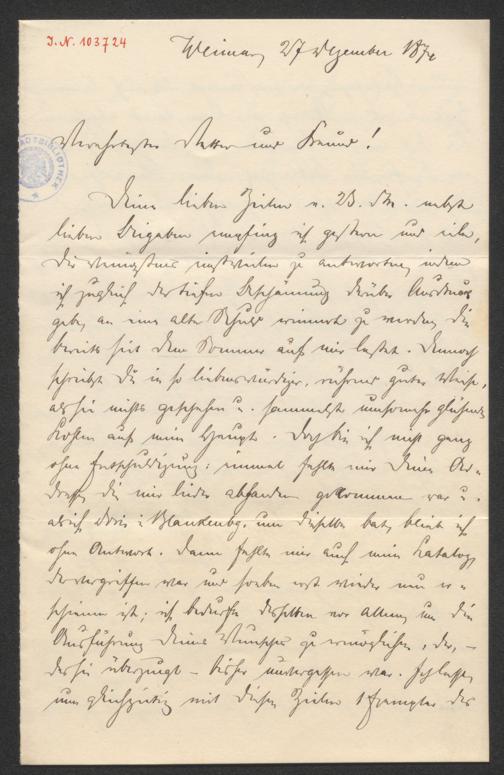 J. N. 103724
Weimar, 27 Dezember 187
STADTBIBLIOTHEK
Verehrtester Vetter und Freund!
Deine lieben Zeilen v. 23. d. M. nebst
lieben Beigaben empfing ich gestern und eile,
Dir wenigstens einstweilen zu antworten, indem
ich zugleich der tiefen Beschämung darüber Ausdruck
gebe, an eine alte Schuld erinnert zu werden, die
bereits seit dem Sommer auf mir lastet. Dennoch
schreibst Du in so liebenswürdiger, rührend guter Weise,
als sei nichts geschehen u. sammelst umsomehr glühende
Kohlen auf mein Haupt. Doch bin ich nicht ganz
ohne Entschuldigung: einmal fehlte mir Deine Ad-
dresse, die mir leider abhanden gekommen war u.
als ich Doris i. Blankenbg. um dieselbe bat, blieb ich
ohne Antwort. Dann fehlte mir auch mein Katalog,
der vergriffen war und soeben erst wieder neu er-
schienen ist; ich bedurfte desselben vor Allem, um die
Ausführung Deines Wunsches zu ermöglichen, der, –
deß sei überzeugt – bisher unvergessen war. Ich lasse
nun gleichzeitig mit diesen Zeilen 1 Exemplar des